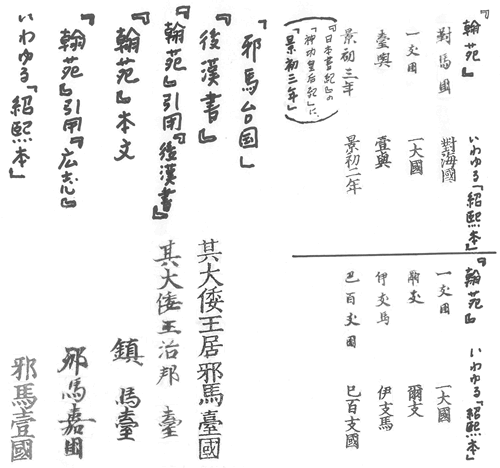 『翰苑』
對馬國
一支国
臺與
景初三年
（『日本書紀』の
「神功皇后紀」に、
「景初三年」）
いわゆる「紹熙本」
對海國
一大國
壹與
景初二年
『翰苑』
一支国
伊支馬
巴百支国
いわゆる「紹熙本」
一大國
爾支
伊支馬
巳百支國
「邪馬台国」
『後漢書』
其大倭王居邪馬臺國
『翰苑』引用『後漢書』
其大倭王治邦臺
『翰苑』本文
鎮馬臺
『翰苑』引用『広志』
邪馬嘉国
いわゆる「紹熙本」
邪馬壹國